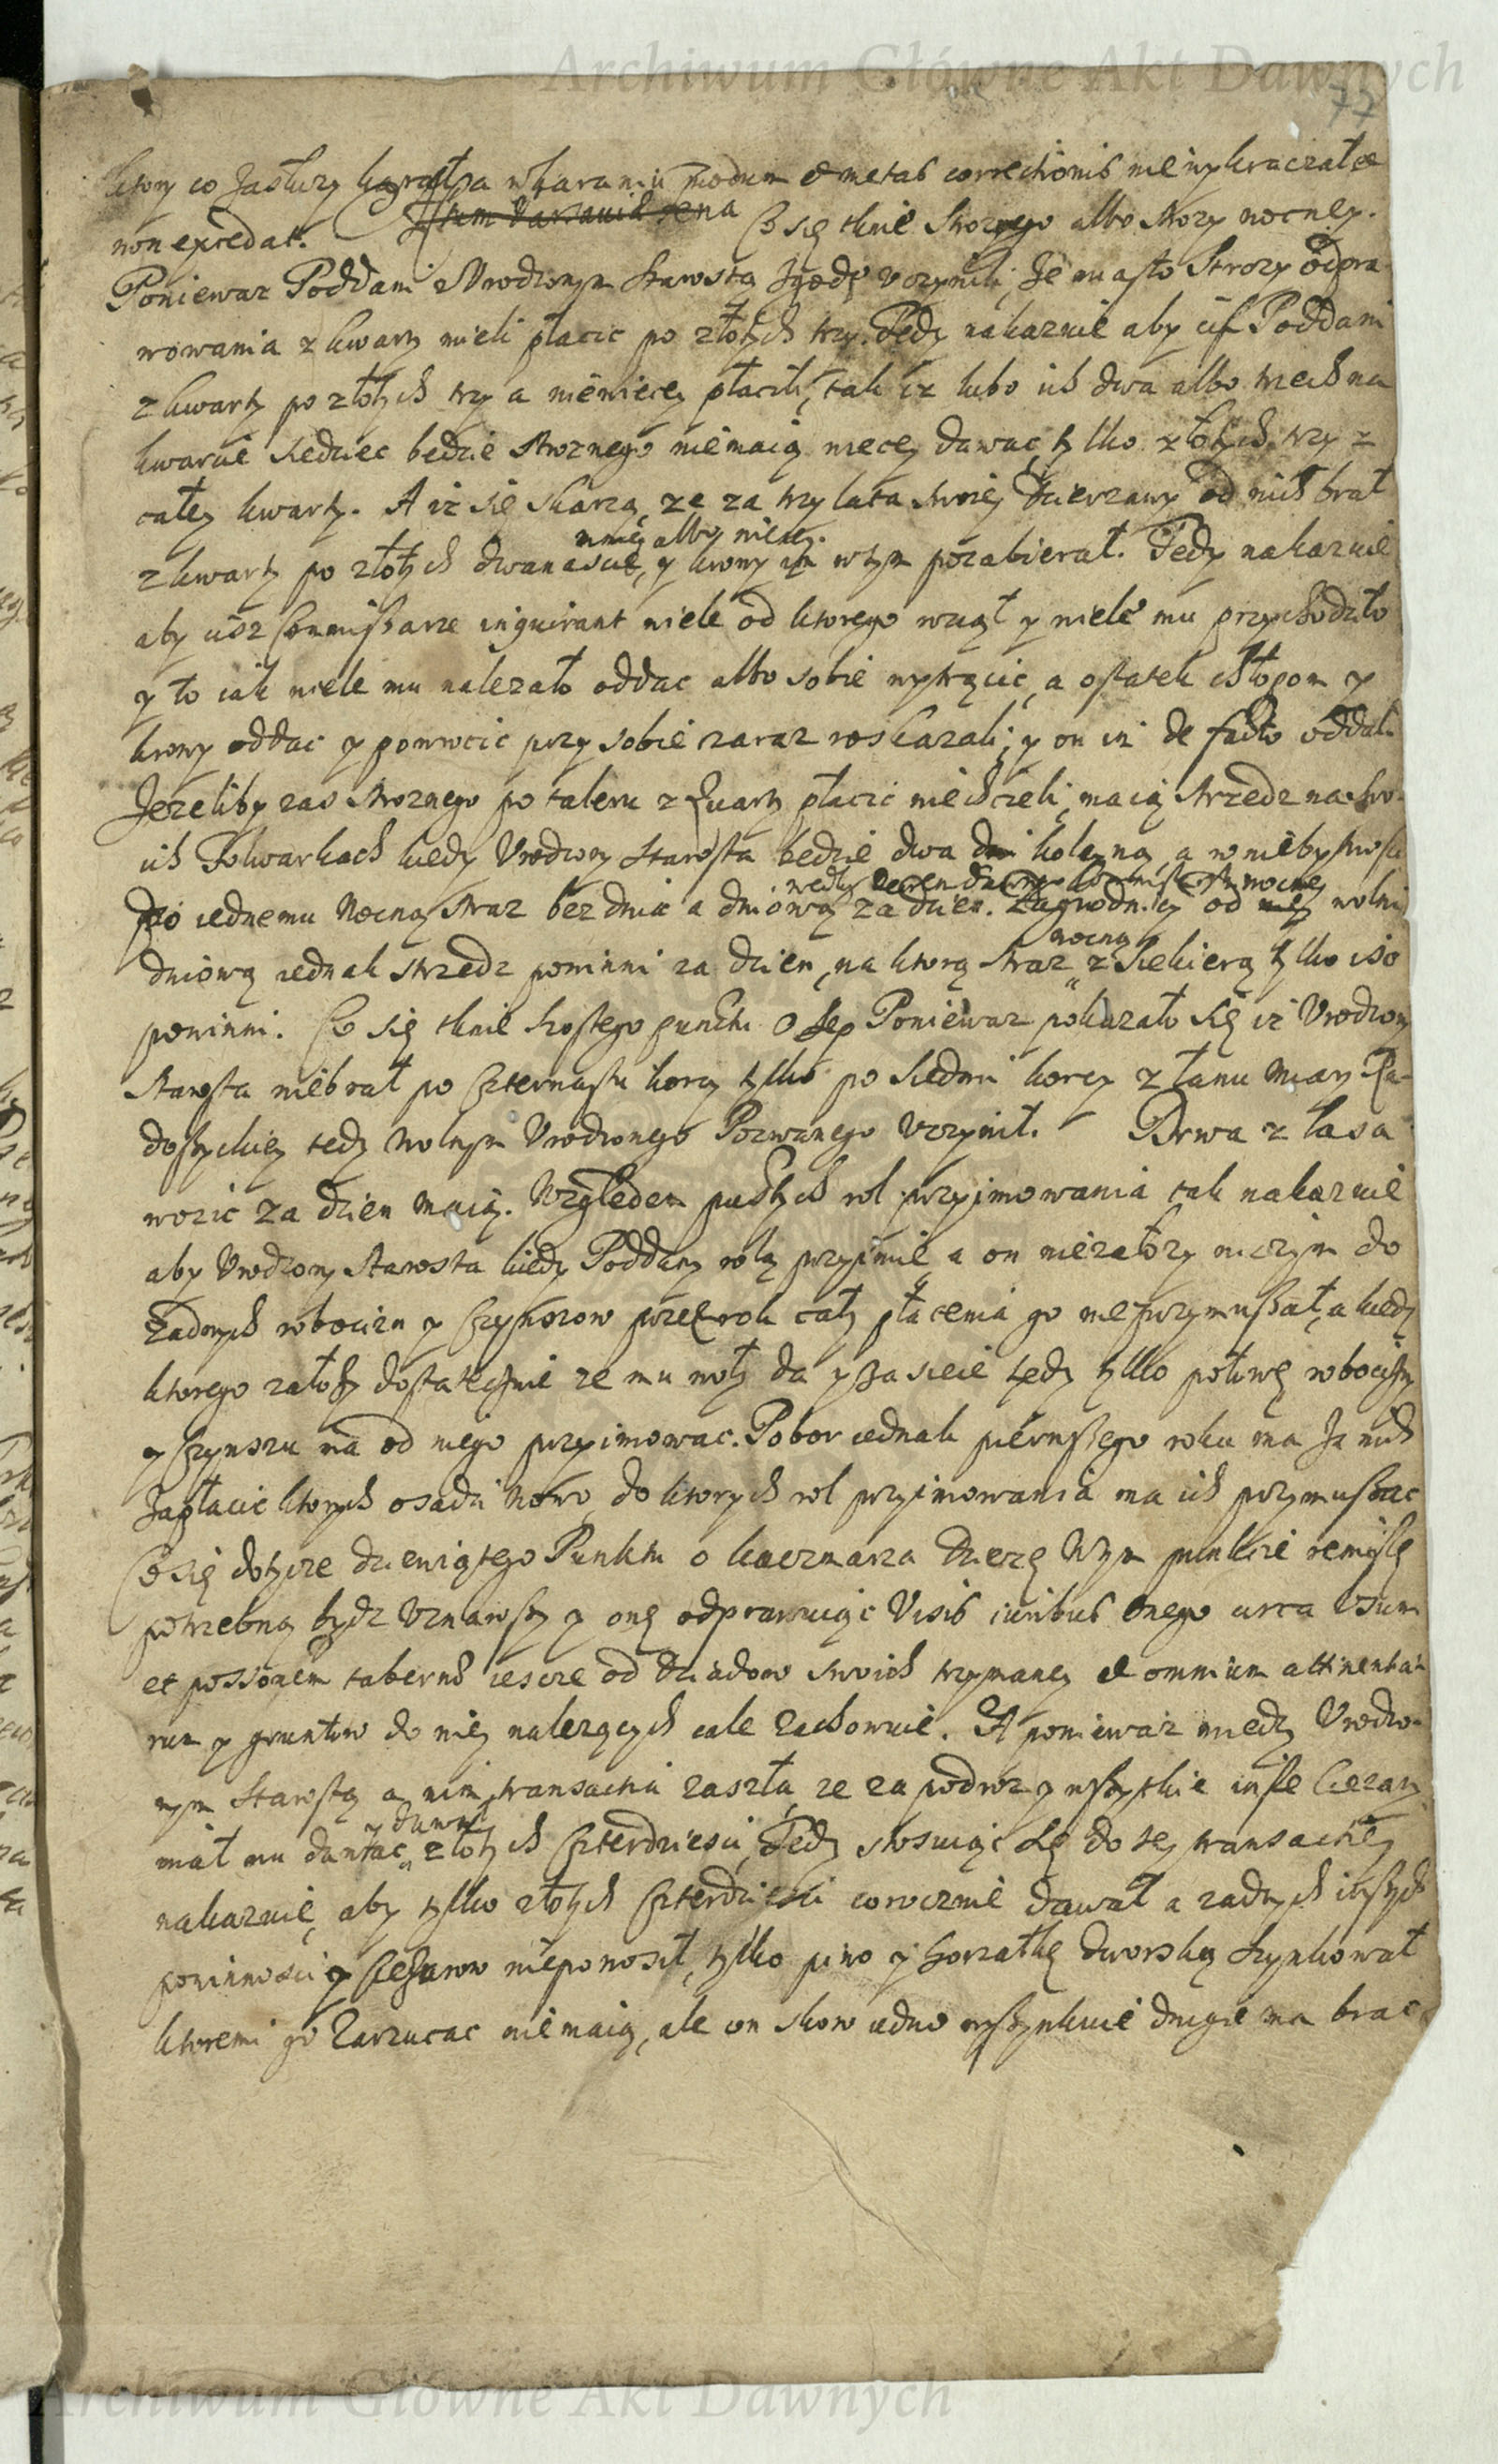 Archiwum Główne Akt Dawnych
77
ktory co zasłuzy karał a w karaniu modum et metas correctionis nie wykraczał
non excedat. Co się tknie Stroznego albo strozy nocney.
Poniewaz Poddani z Urodzonym Starostą zgodę uczynili, ze miasto Strozy odpra-
wowania z kwarty mieli płacic po złotych trzy. Tedy nakazuie aby ciz Poddani
z kwarty po złotych trzy a niewięcey płacili, tak iz lubo ich dwa albo trzech na
kwarcie siedziec bedzie stroznego niemaią wiecey dawac, tylko złotych trzy z
całey kwarty. A iz się skarzą, ze za trzy lata swoiey dzierzawy od nich brał
mniey albo wiecey.
z kwarty po złotych dwanascie, y krowy im w tym pozabierał. Tedy nakazuie
aby ciz Commissarze inquirant wiele od ktorego wziął y wiele mu przychodziło
y to iak wiele mu nalezało oddac albo sobie wytrącic, a ostatek chłopom y
krowy oddac y powrocic przy sobie zaraz roskazali, y on in de facto oddal.
Jezeliby zas stroznego po taleru z Quarty płacic niechcieli, maią strzedz na
ich Folwarkach kiedy Urodzony Starosta bedzie dwa koleyną, a w niebytnosci
po iednemu Nocną straz bez dnia a dniową za dzien. Zagrodnicy od nocney wolni
nocną
dniową iednak strzedz powinni za dzien, na ktorą straz z siekierą tylko isc
powinni. Co się tknie szostego punctu o Sep Poniewaz pokazało się iz Urodzony
Starosta niebrał po czternastu korcy tylko po siedmi korcy z łanu miary Ra-
doszyckiey tedy wolnym Urodzonego Pozwanego uczynił. Drwa z lasa
wozic za dzien maią. Względem pustych rol przyimowania tak nakazuie
aby Urodzony Starosta kiedy Poddany rolą przyimie a on niezałozy niczym do
zadnych robocizn y czynszow przez rok cały płacenia go nieprzymuszał, a kiedy
ktorego załozy dostatecznie ze mu woły da y zasieie tedy tylko połowę robocizny
y czynszu ma od niego przyimowac. Pobor iednak pierwszego roku ma za nich
zapłacic ktorych osadzi nowo, do ktorych rol przyimowania ma ich przymuszac
Co się dotycze dziewiątego Punktu o karczmarza Dziezę W tym punkcie remissę
potrzebną bydz uznawszy y onę odprawuiąc Visis iuribus onego circa usum
et possonem tabernae iescze od dziadow swoich trzymaney et omnium attinentia-
rum y gruntow do niey nalezących cale zachowuie. A poniewaz miedzy Urodzo-
nym Starostą a nim transactia zaszła, ze za podroz y wszytkie insze ciezary
y dawał
miał mu dawac złotych czterdziesci, Tedy stosuiąc się do tey transactiey
nakazuie, aby tylko złotych czterdziesci corocznie dawał a zadnych inszych
powinnosci y ciezarow nieponosił, tylko piwo y gorzałkę dworską szynkował
ktoremi go zarzucac niemaią, ale on skoro iedno wyszynkuie drugie ma brac
Archiwum Główne Akt Dawnych